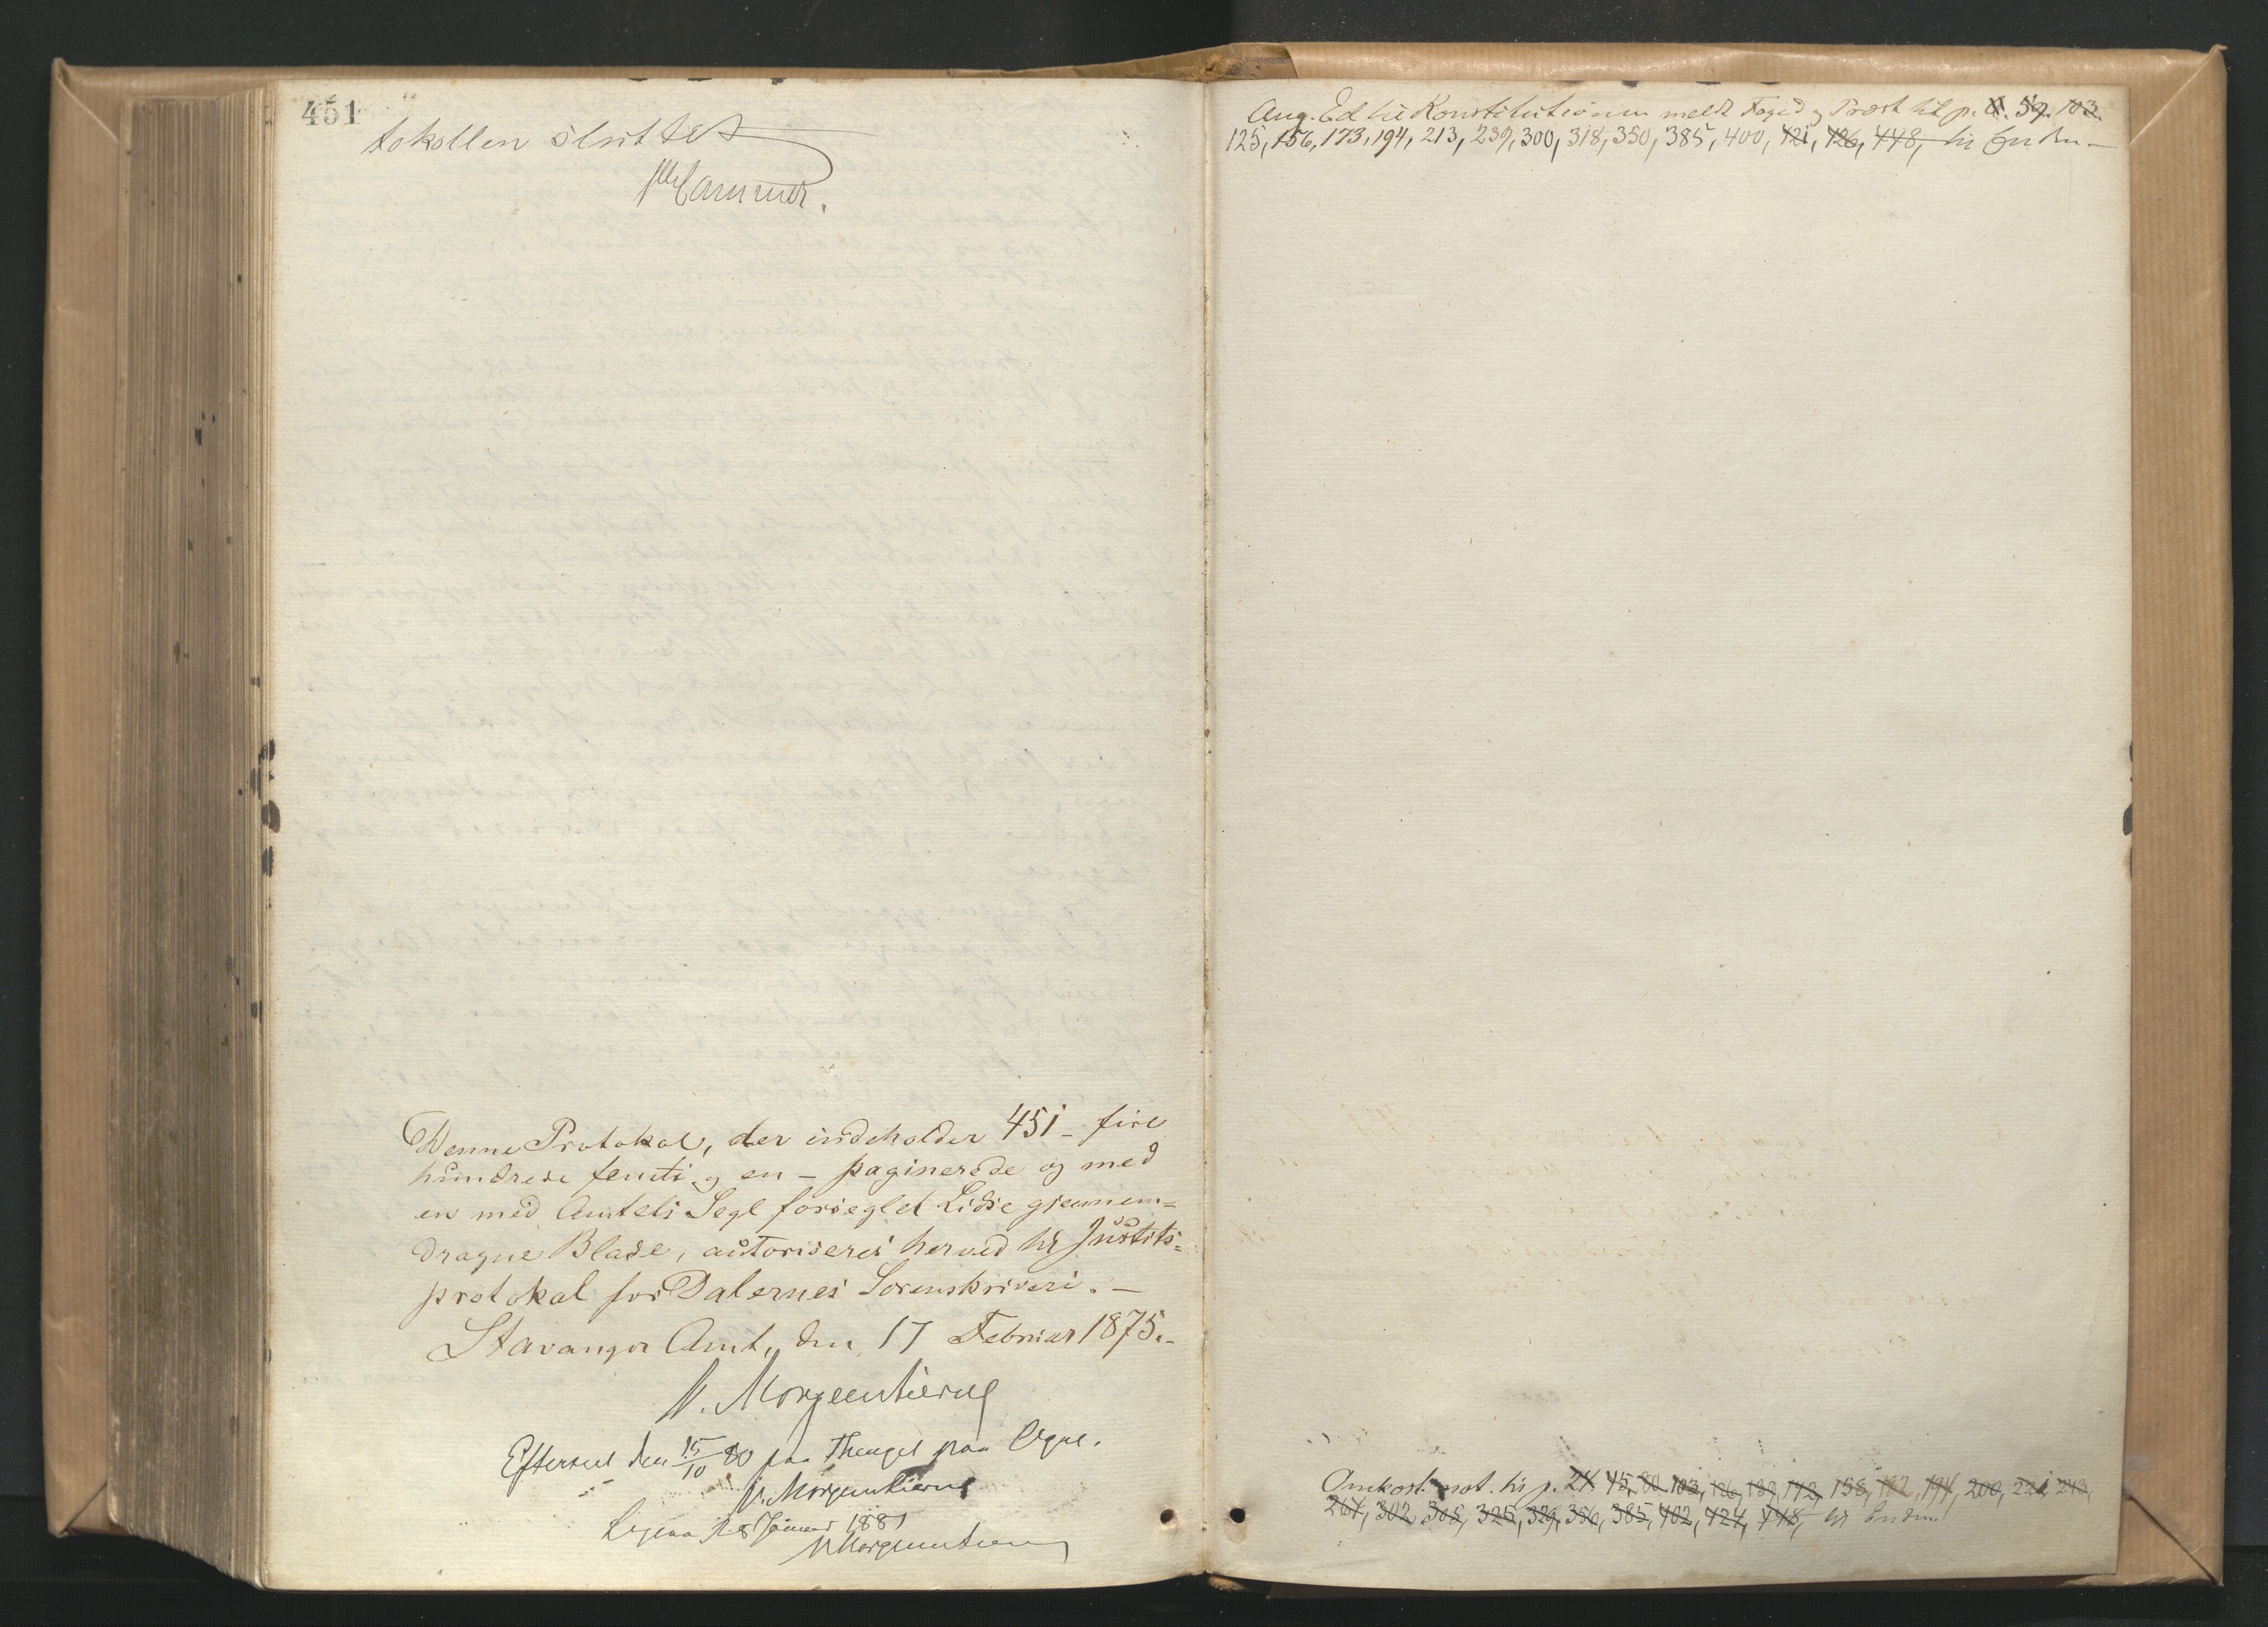 451
tokollen sluttet
Hammer.
Denne Protokol, der indeholder 451 - fire
hundrede femti og en - paginerede og med
en med Amtets Segl forseglet Lidse gjennem=
dragne Blade, autoriseres herved til Justits=
protokol for Dalernes Sorenskriveri. -
Stavanger Amt, den 17 Februar 1875. -
V. Morgenstierne
Efterseet den 15/10 80 paa Thinget paa Ogne.
V. Morgenstierne
18 Januar 1881
VMorgenstierne
Aug. Ed til Konstitutionen meldt Foged og Præst til p. 59. 103.
125, 156, 173, 194, 213, 239, 300, 318, 350, 385, 400, 421, 426, 448, til Enden -
Omkost. not. til p. 24 45, 80 103, 126, 139, 142, 158, 192, 194, 200, 221 243,
264, 302 305, 325, 329, 356, 385, 402, 424, 448, til Enden.